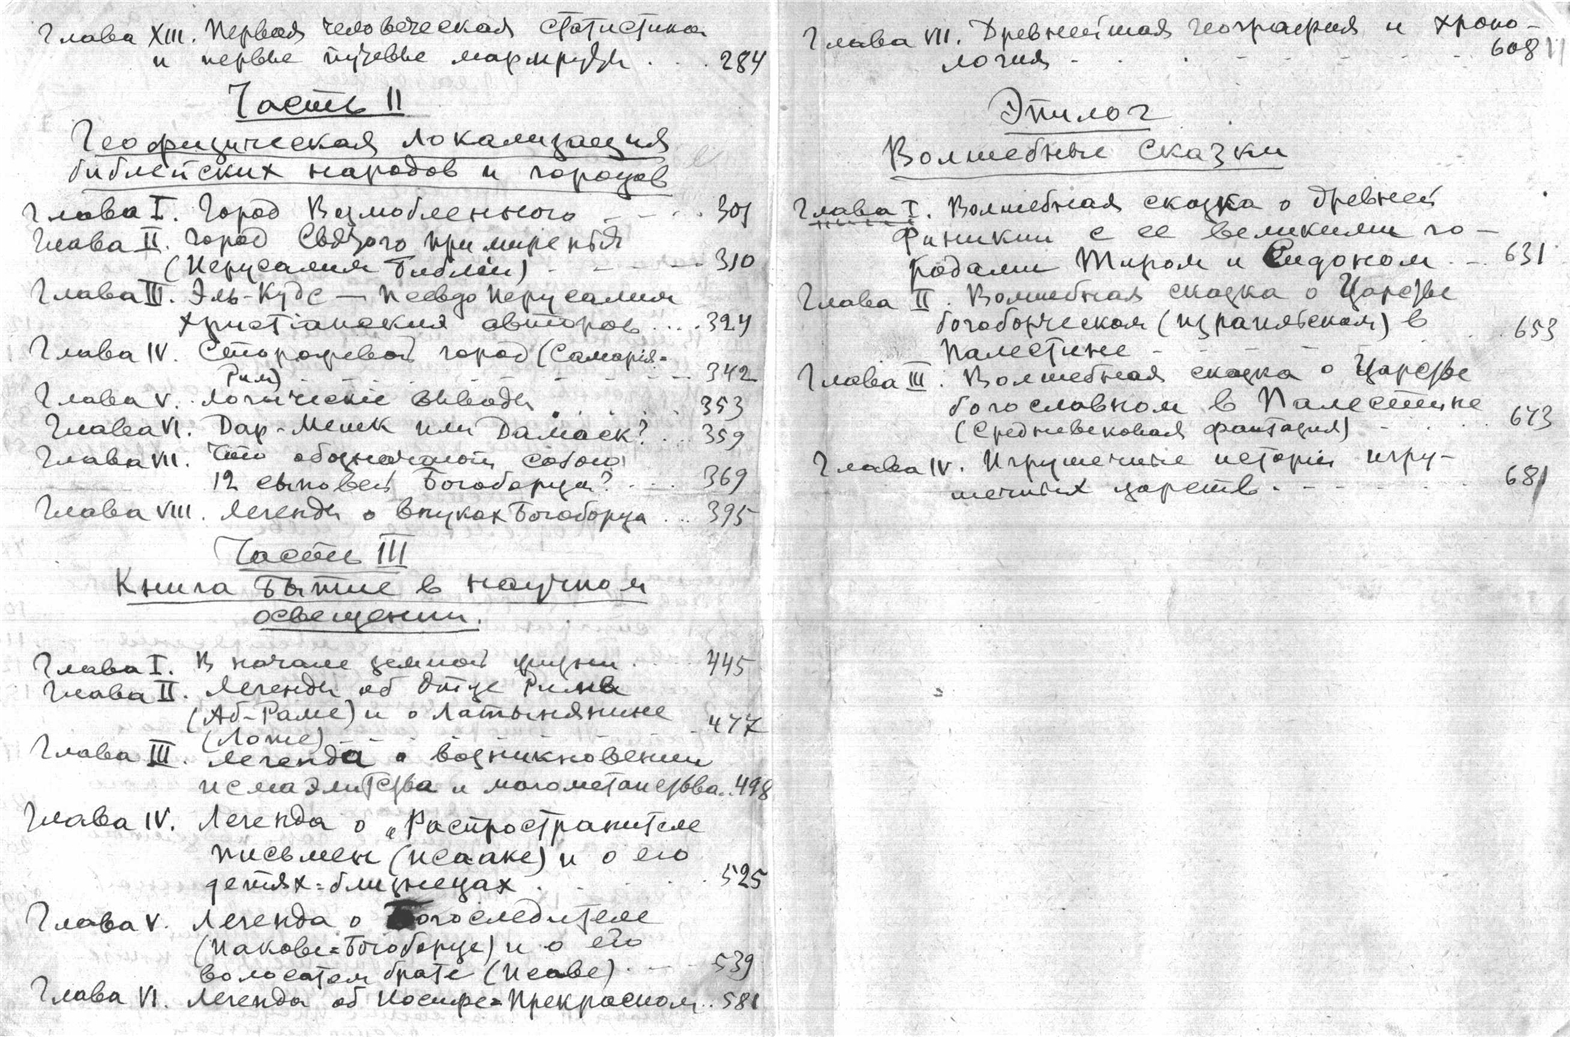 Глава XIII. Первая человеческая статистика
и первые путевые маршруты . . . 284
Часть II
Геофизическая локализация
библейских народов и городов
Глава I. Город Возлюбленного - - - - 301
Глава II. Город Святого примиренья
(Иерусалим Библии) - - - - - - 310
Глава III. Эль-Кудс — псевдо Иерусалим
христіанских авторов . . . . 324
Глава IV. Сторожевой город (Самарія=
Рим) - - - - - - - 342
Глава V. Логические выводы . . . . . 353
Глава VI. Дар-Мешк или Дамаск? . . . 359
Глава VII. Что обозначают собою
12 сыновей Богоборца? . . . 369
Глава VIII. Легенды о внуках Богоборца . . . 395
Часть III
Книга Бытие в научном
освещении.
Глава I. В начале земной жизни . . . 445
Глава II. Легенды об Отце Рима
(Аб-Раме) и о Латынянине
(Лоте) - - - 477
Глава III. Легенда о возникновении
исмаэлитства и магометанства . . 498
Глава IV. Легенда о „Распространителе
письмен (Исааке) и о его
детях=близнецах . . . . . 525
Глава V. Легенда о Богоследителе
(Иакове=Богоборце) и о его
волосатом брате (Исаве) . - - - 539
Глава VI. Легенда об Иосифе=Прекрасном . . 581
Глава VII. Древнейшая география и хроно-
логия - - - - - - - - 608
Эпилог
Волшебные сказки
Глава I. Волшебная сказка о древней
Финикии с ее великими го-
родами Тиром и Сидоном . - . 631
Глава II. Волшебная сказка о Царстве
богоборческом (израильском) в
Палестине - - - - - - 653
Глава III. Волшебная сказка о Царстве
богославном в Палестине
(средневековая фантазия) - . . . 673
Глава IV. Игрушечные истории игру-
шечных царств . - - - - - - 681